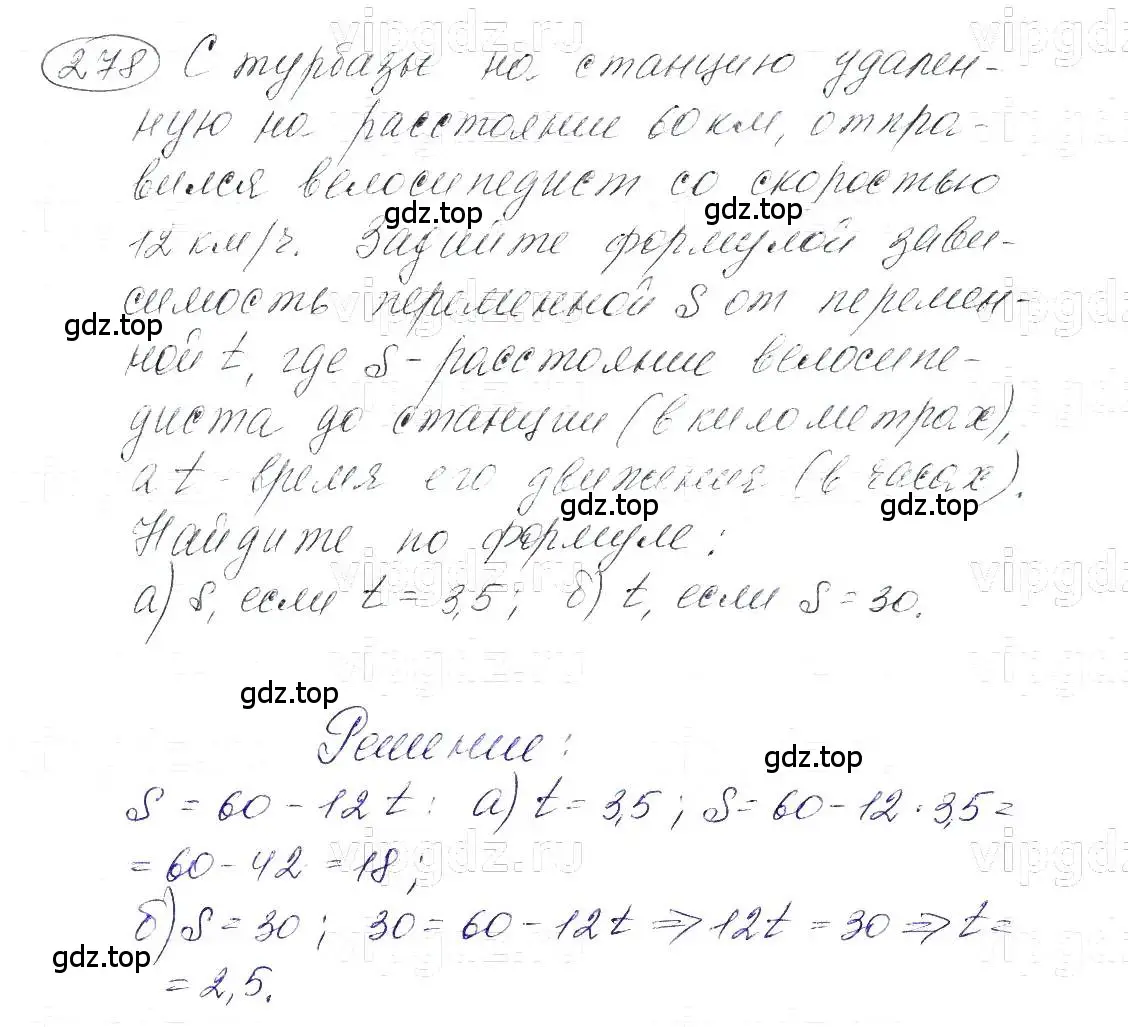 278 С турбазы на станцию удален-
ную на расстояние 60 км, отпра-
вился велосипедист со скоростью
gdz.top gdz.top
12 км/ч. Задайте формулой зави-
симость переменной S от перемен-
gdz.top
ной t, где S - расстояние велосипе-
диста до станции (в километрах),
а t - время его движения (в часах).
gdz.top gdz.top
Найдите по формуле:
а) S, если t = 3,5; б) t, если S = 30.
gdz.top
Решение:
gdz.top
S = 60 - 12t: а) t = 3,5; S = 60 - 12 · 3,5 =
= 60 - 42 = 18;
б) S = 30; 30 = 60 - 12t => 12t = 30 => t =
gdz.top
= 2,5.